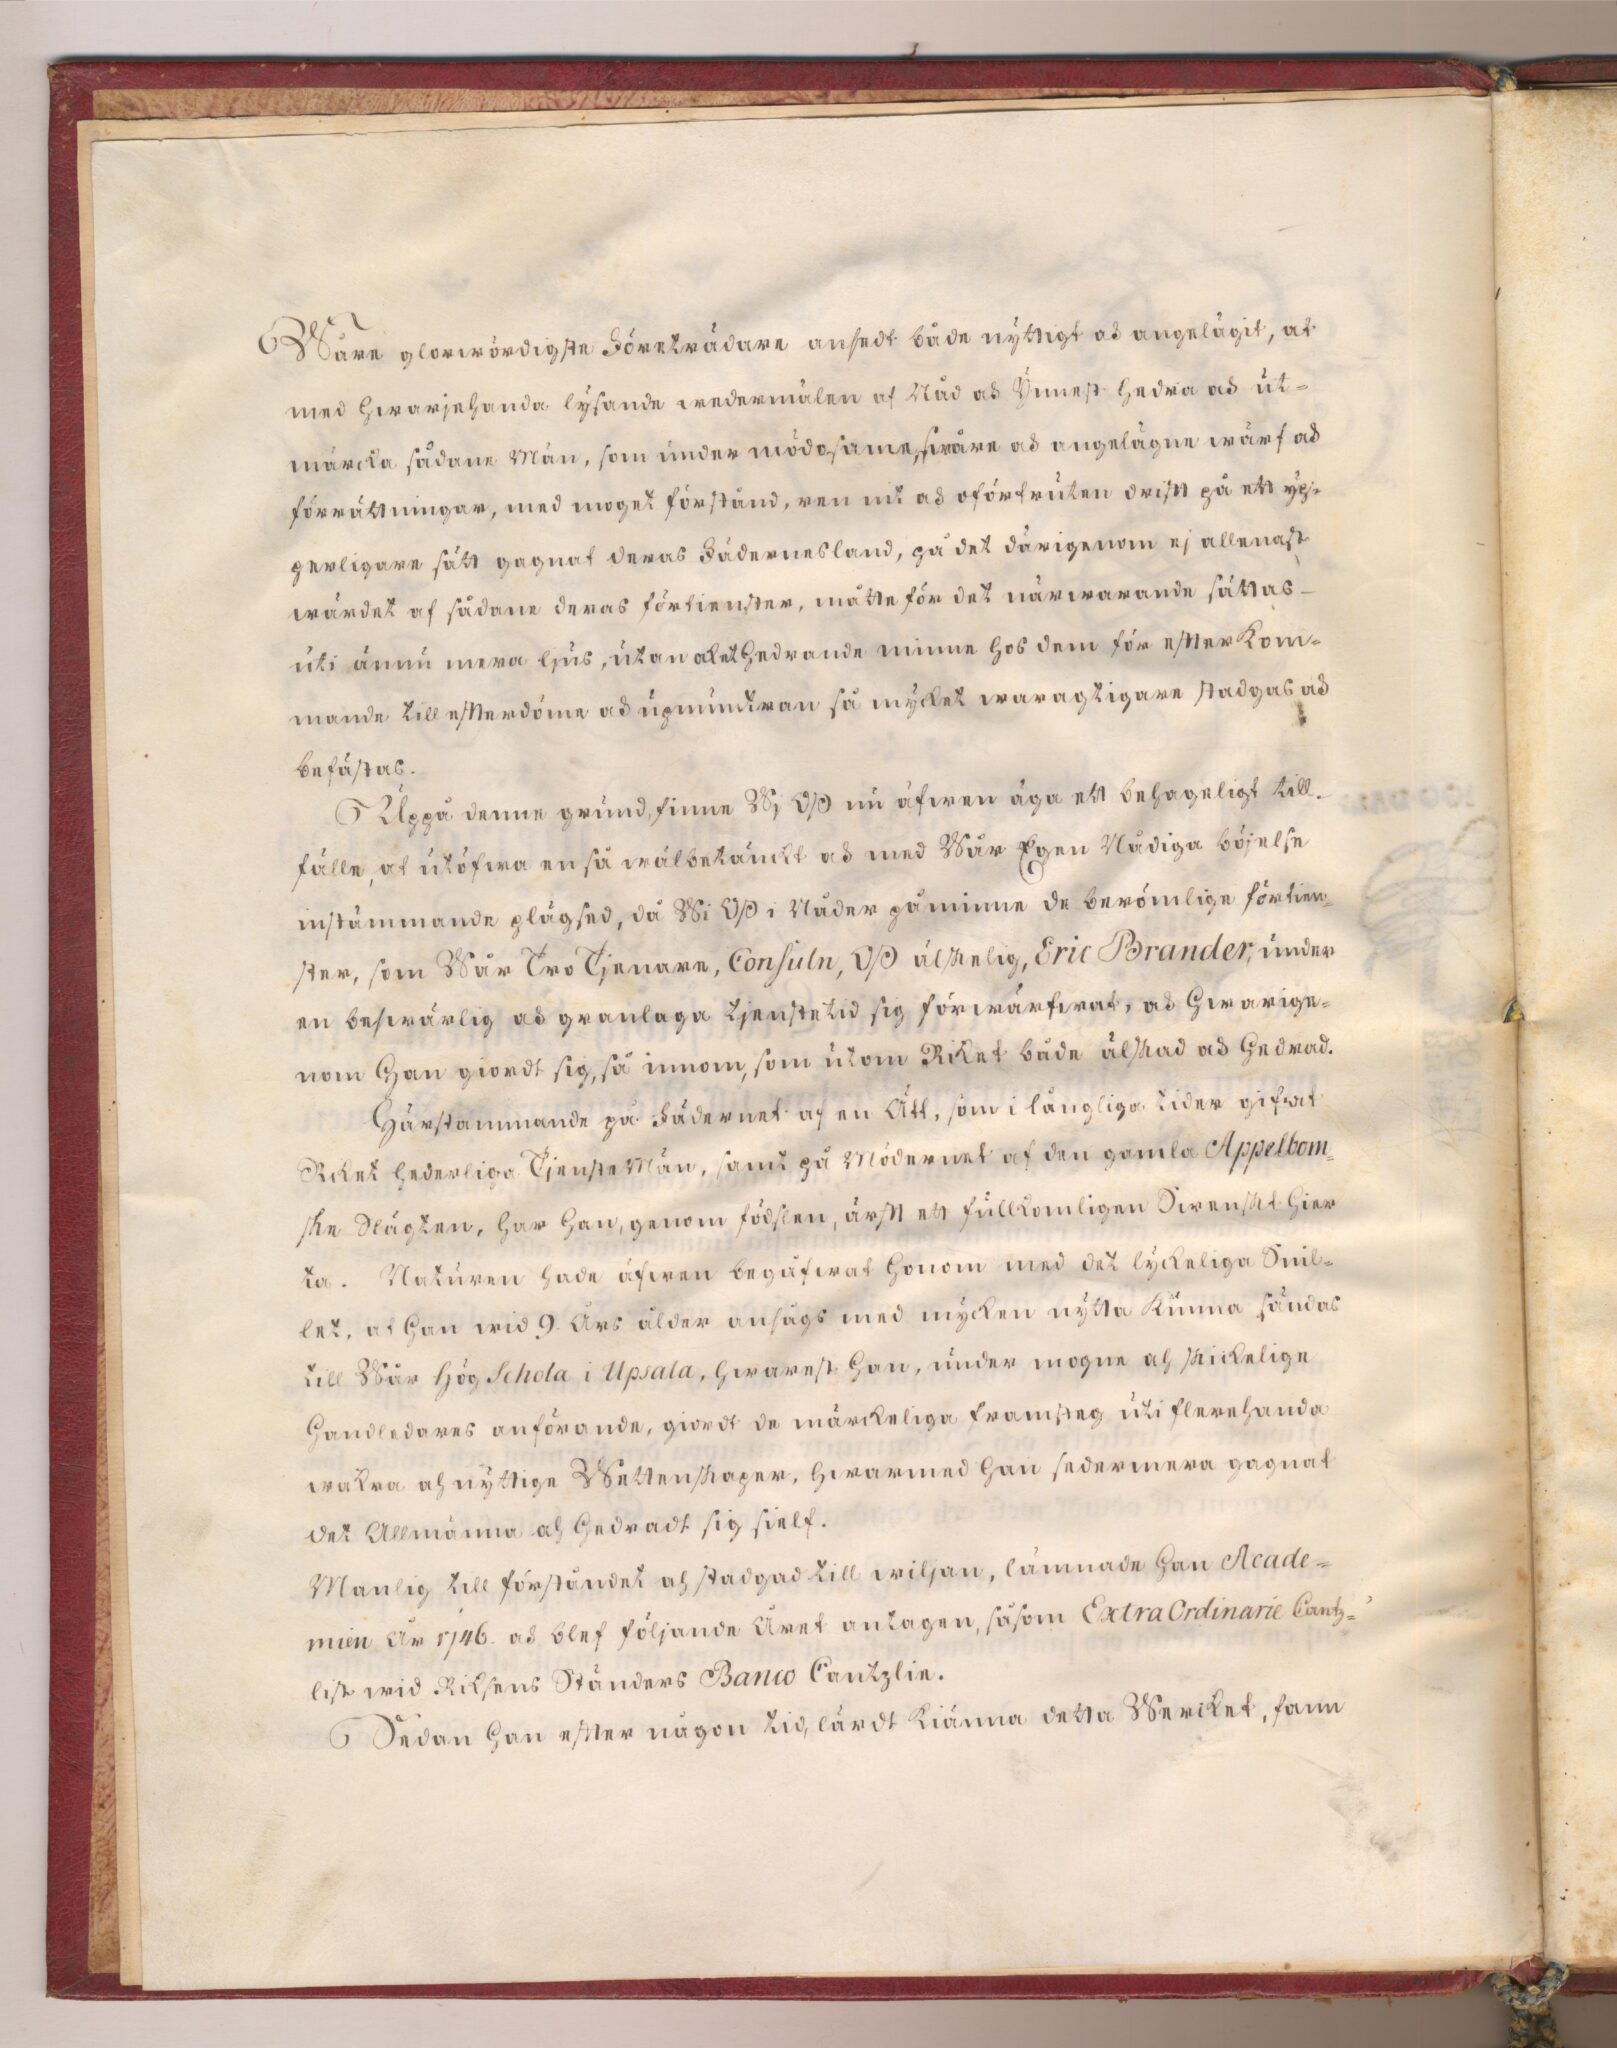 Wåre glorwördigste Företrädare ansedt både nyttigt och angelägit, at
med hwarjehanda lysande wedermälen af Nåd och Ynnest hedra och ut=
märcka sådane Män, som under mödosame, swåre och angelägne wärf och
förrättningar, med moget förstånd, ren nit och oförtruten drift på ett yp=
perligare sätt gagnat deras Fädernesland, på det därigenom ej allenast
wärdet af sådane deras förtienster, måtte för det närwarande sättas
uti ännu mera ljus, utan ock ett hedrande minne hos dem för efterkom=
mande till efterdöme och upmuntran så mycket waragtigare stadgas och
befästas.
Uppå denne grund, finne Wj Oss nu äfwen äga ett behageligt till=
fälle, at utöfwa en så wälbetänckt och med Wår Egen Nådiga böjelse
instämmande plägsed, då Wi Oss i Nåder påminne de berömlige förtien=
ster, som Wår Tro Tjenare, Consuln, Oss älskelig, Eric Brander, under
en beswärlig och granlaga tjenstetid sig förwärfwat, och hwarige=
nom Han giordt sig, så innom, som utom Riket både älskad och hedrad.
Härstammande på Fädernet af en Ätt, som i långliga tider gifwat
Riket hederliga Tjenste Män, samt på Mödernet af den gamla Appelbom=
ske Slägten, har Han, genom födslen, ärft ett fullkomligen Swenskt Hier
ta. Naturen hade äfwen begåfwat Honom med det lyckeliga Snil=
let, at Han wid 9. Års ålder ansågs med mycken nytta kunna sändas
till Wår Hög Schola i Upsala, hwarest Han, under mogne och skickelige
Handledares anförande, giordt de märckeliga framsteg uti flerehanda
wakra och nyttige Wettenskaper, hwarmed Han sedermera gagnat
det Allmänna och hedradt sig sielf.
Manlig till förståndet och stadgad till wiljan, lämnade Han Acade=
mien År 1746. och blef följande Året antagen, såsom Extra Ordinarie Cantz=
list wid Riksens Ständers Banco Cantzlie.
Sedan Han efter någon tid, lärdt kiänna detta Wercket, fann